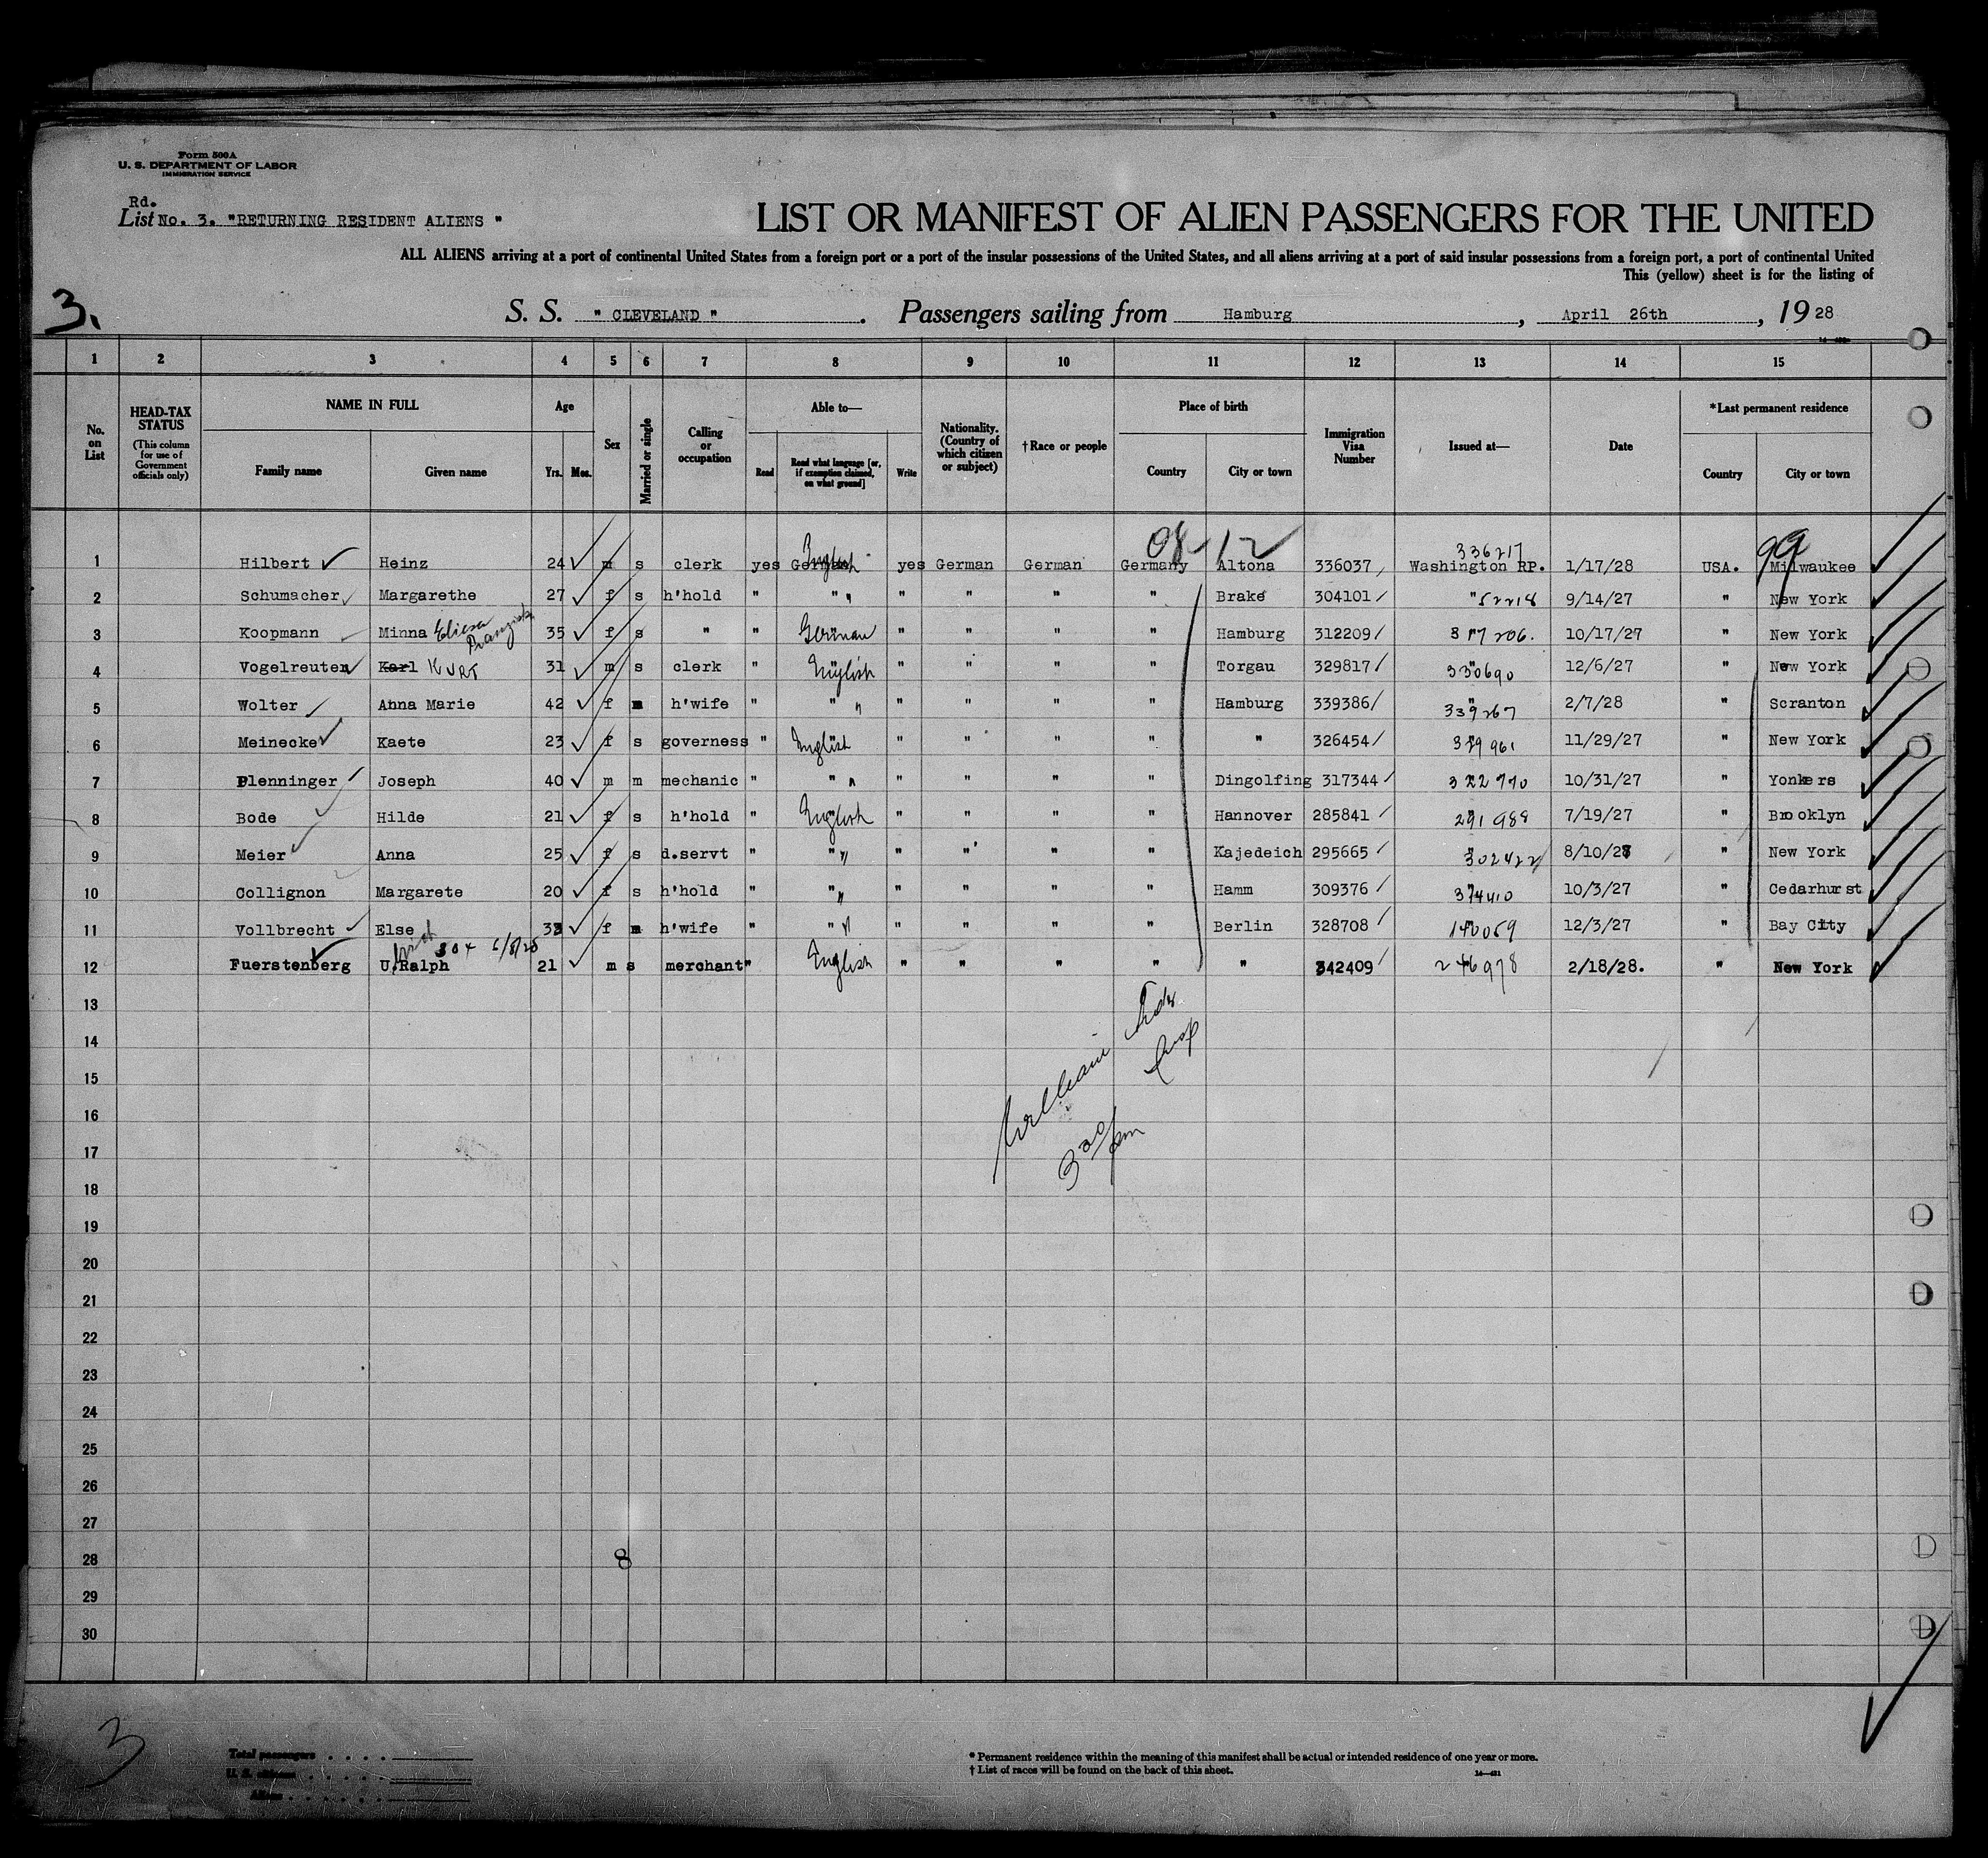 Form 500A
U. S. DEPARTMENT OF LABOR
IMMIGRATION SERVICE
Rd.
List No. 3. "RETURNING RESIDENT ALIENS "
LIST OR MANIFEST OF ALIEN PASSENGERS FOR THE UNITED
ALL ALIENS arriving at a port of continental United States from a foreign port or a port of the insular possessions of the United States, and all aliens arriving at a port of said insular possessions from a foreign port, a port of continental United
This (yellow) sheet is for the listing of
3.
S. S. " CLEVELAND " . Passengers sailing from Hamburg , April 26th , 19 28
1 2 3 4 5 6 7 8 9 10 11 12 13 14 15
No. on List
HEAD-TAX STATUS
(This column for use of Government officials only)
NAME IN FULL
Family name
Given name
Age
Yrs. Mos.
Sex
Married or single
Calling or occupation
Able to—
Read
Read what language [or, if exemption claimed, on what ground]
Write
Nationality. (Country of which citizen or subject)
†Race or people
Place of birth
Country
City or town
Immigration Visa Number
Issued at—
Date
*Last permanent residence
Country
City or town
08-12 99
English 336217
1 Hilbert Heinz 24 m s clerk yes German yes German German Germany Altona 336037 Washington RP. 1/17/28 USA. Milwaukee
2 Schumacher Margarethe 27 f s h'hold " " " " " " Brake 304101 " 52218 9/14/27 " New York
3 Koopmann Minna Eliesa 35 f s " " German " " " " Hamburg 312209 317206. 10/17/27 " New York
4 Vogelreuten Karl KURT 31 m s clerk " English " " " " Torgau 329817 330690 12/6/27 " New York
5 Wolter Anna Marie 42 f m h'wife " " " " " " Hamburg 339386 339267 2/7/28 " Scranton
6 Meinecke Kaete 23 f s governess " English " " " " " 326454 329961 11/29/27 " New York
7 Plenninger Joseph 40 m m mechanic " " " " " " Dingolfing 317344 322770 10/31/27 " Yonkers
8 Bode Hilde 21 f s h'hold " English " " " " Hannover 285841 291988 7/19/27 " Brooklyn
9 Meier Anna 25 f s d.servt " " " " " " Kajedeich 295665 302422 8/10/27 " New York
10 Collignon Margarete 20 f s h'hold " " " " " " Hamm 309376 374410 10/3/27 " Cedarhurst
11 Vollbrecht Else 33 f m h'wife " " " " " " Berlin 328708 140069 12/3/27 " Bay City
304 6/8/28
12 Fuerstenberg U.Ralph 21 m s merchant " English " " " " " 342409 246978 2/18/28. " New York
13
14
15
16
17
18
19
20
21
22
23
24
25
26
27
28
29
30
William
3 30 pm
8
3
Total passengers
U. S. citizens
Aliens
* Permanent residence within the meaning of this manifest shall be actual or intended residence of one year or more.
† List of races will be found on the back of this sheet.
14—431